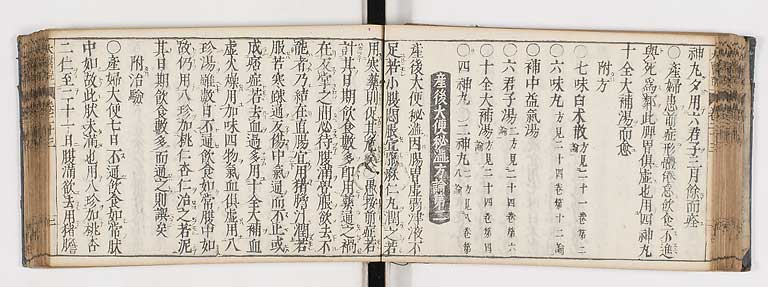 神丸夕用六君子三月餘而痊
○產婦患前症形體倦怠飲食不進
與死為鄰此脾胃俱虛也用四神丸
十全大補湯而愈
附方
○七味白朮散方見二十一卷第二論
○六味丸方見二十四卷第十二論
○補中益氣湯
○六君子湯
○十全大補湯方見二十四卷第四論
○四神丸 ○二神丸方見八卷第八論
產後大便秘澁方論第
產後大便秘澁因腸胃虛弱津液不
足若小腹悶脹宜服麻仁丸潤之若
用寒藥則促其危愚按前症若
計其日期飲食數多即用藥通之禍
在反掌之間必待腹滿覺脹欲去不
能者乃結在直腸宜用豬膽汁潤若
服苦寒疎通反傷中氣通而不止或
成痞症若去血過多用十全大補血
虛火燥用加味四物氣血俱虛用八
珍湯雖數日不通飲食如常腹中如
故仍用八珍加桃仁杏仁治之若泥
其日期飲食數多而通之則誤矣
附治驗
○產婦大便七日不通飲食如常脈
中如故此狀未滿也用八珍加桃杏
二仁至二十一日腹滿欲去用豬膽